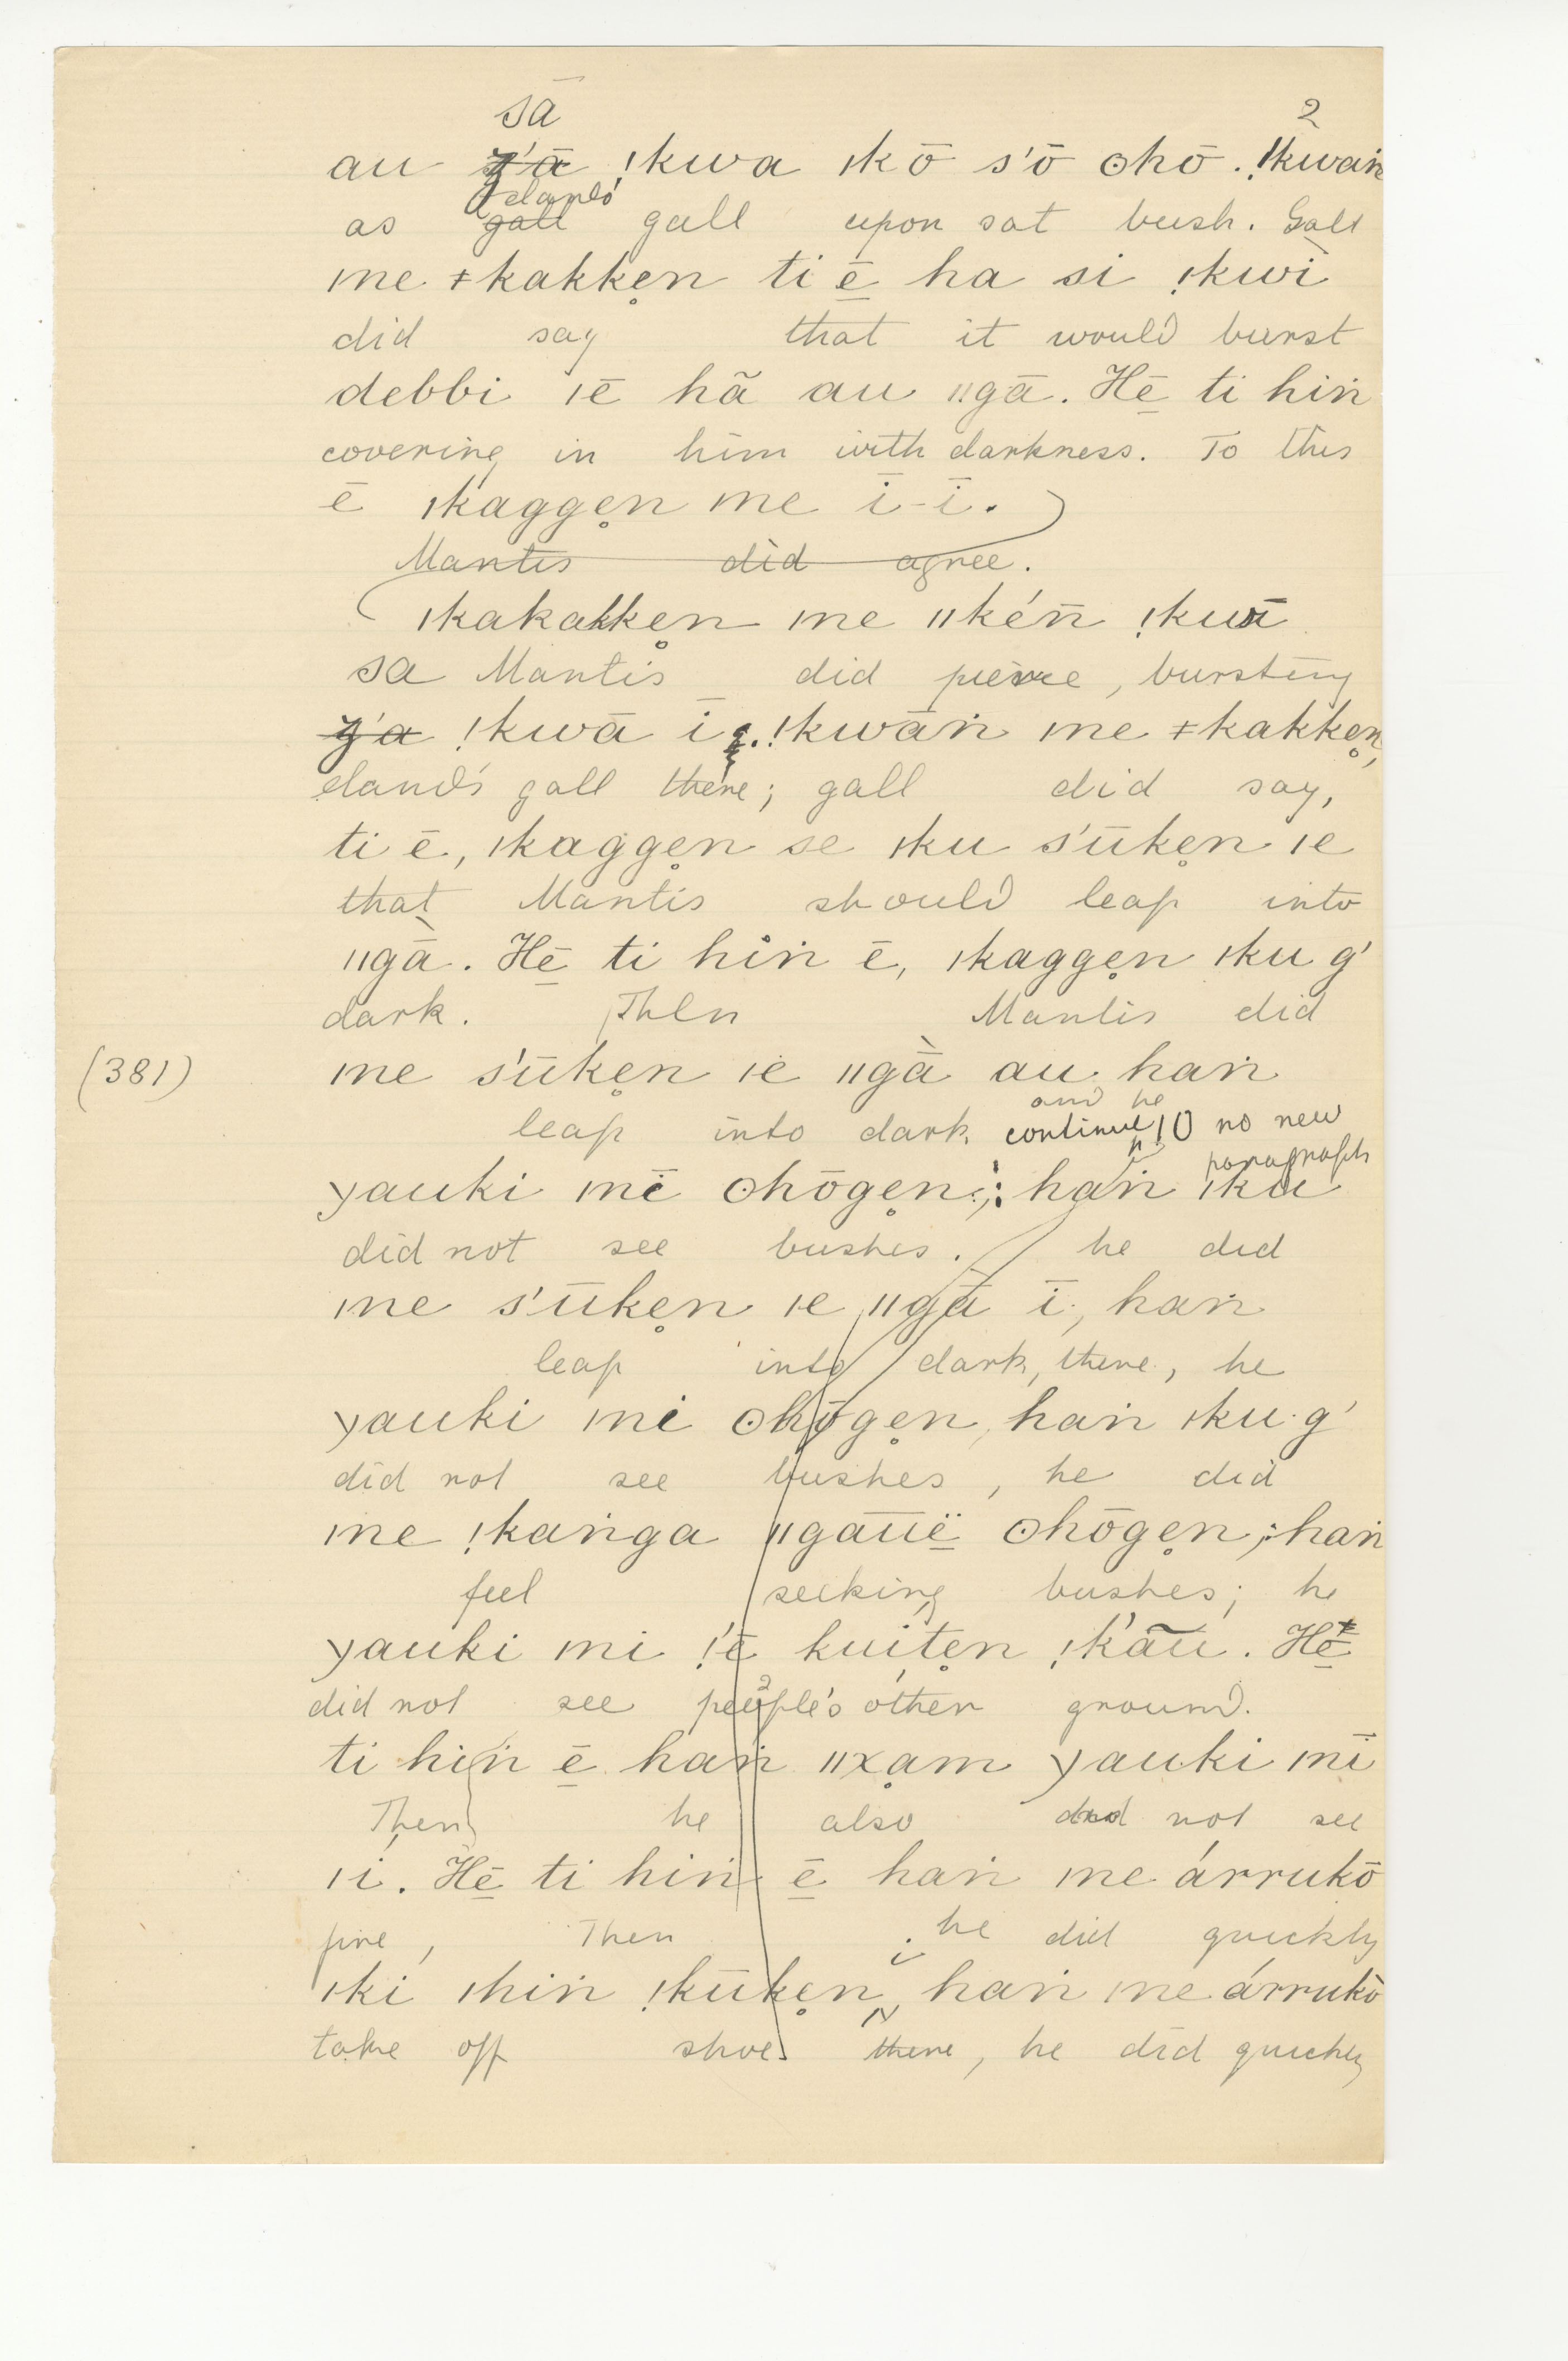 sā 2
au g'ā !kwa ıkō s'ō ʘhō. !kwaṅ
eland's
as gall gall upon sat bush. Gall
ıne ǂkakkẹn ti ē̱ ha si !kwì
did say that it would burst
debbi ıē hã au ıı̀gā. Hē̱ ti hiṅ
covering in him with darkness. To this
ē ıkaggẹn ıne ī-ī.
Mantis did agree.
ıkakakkẹn ıne ııkéñ !kwā
sa Mantis did pierce, bursting
g'a !kwā ī. !kwāṅ ıne ǂkakkẹn,
eland's gall there; gall did say,
ti ē, ıkaggẹn se ıku s'ūkẹn ıe
that Mantis should leap into
ııgā̀. Hē̱ ti hiṅ ē, ıkaggẹn ıku g'
dark. Then Mantis did
(381) ıne s'ūkẹn ıe ııgā̀ au haṅ
and he
leap into dark, continue no new
paragraph
yauki ınĕ ʘhōgẹn; haṅ ıku
did not see bushes. he did
ıne s'ūkẹn ıe ııgā̀ ī, haṅ
leap into dark, there, he
yauki ıni ʘhōgẹn, haṅ ıku g'
did not see bushes, he did
ıne !kaṅga ııgauë̱ ʘhōgẹn; haṅ
feel seeking bushes; he
yauki ıni !'ē kuitẹn !k'ãũ. Hē̱
did not see people's other ground.
ti hiṅ ē̱ haṅ ııxạm yauki ınī
Then he also did not see
ıi. Hē̱ ti hiṅ ē̱ haṅ ıne árrukō
fire, Then he did quickly
i
ıki ıhiṅ !kūkẹn, haṅ ıne árrukō
take off shoes there, he did quickly